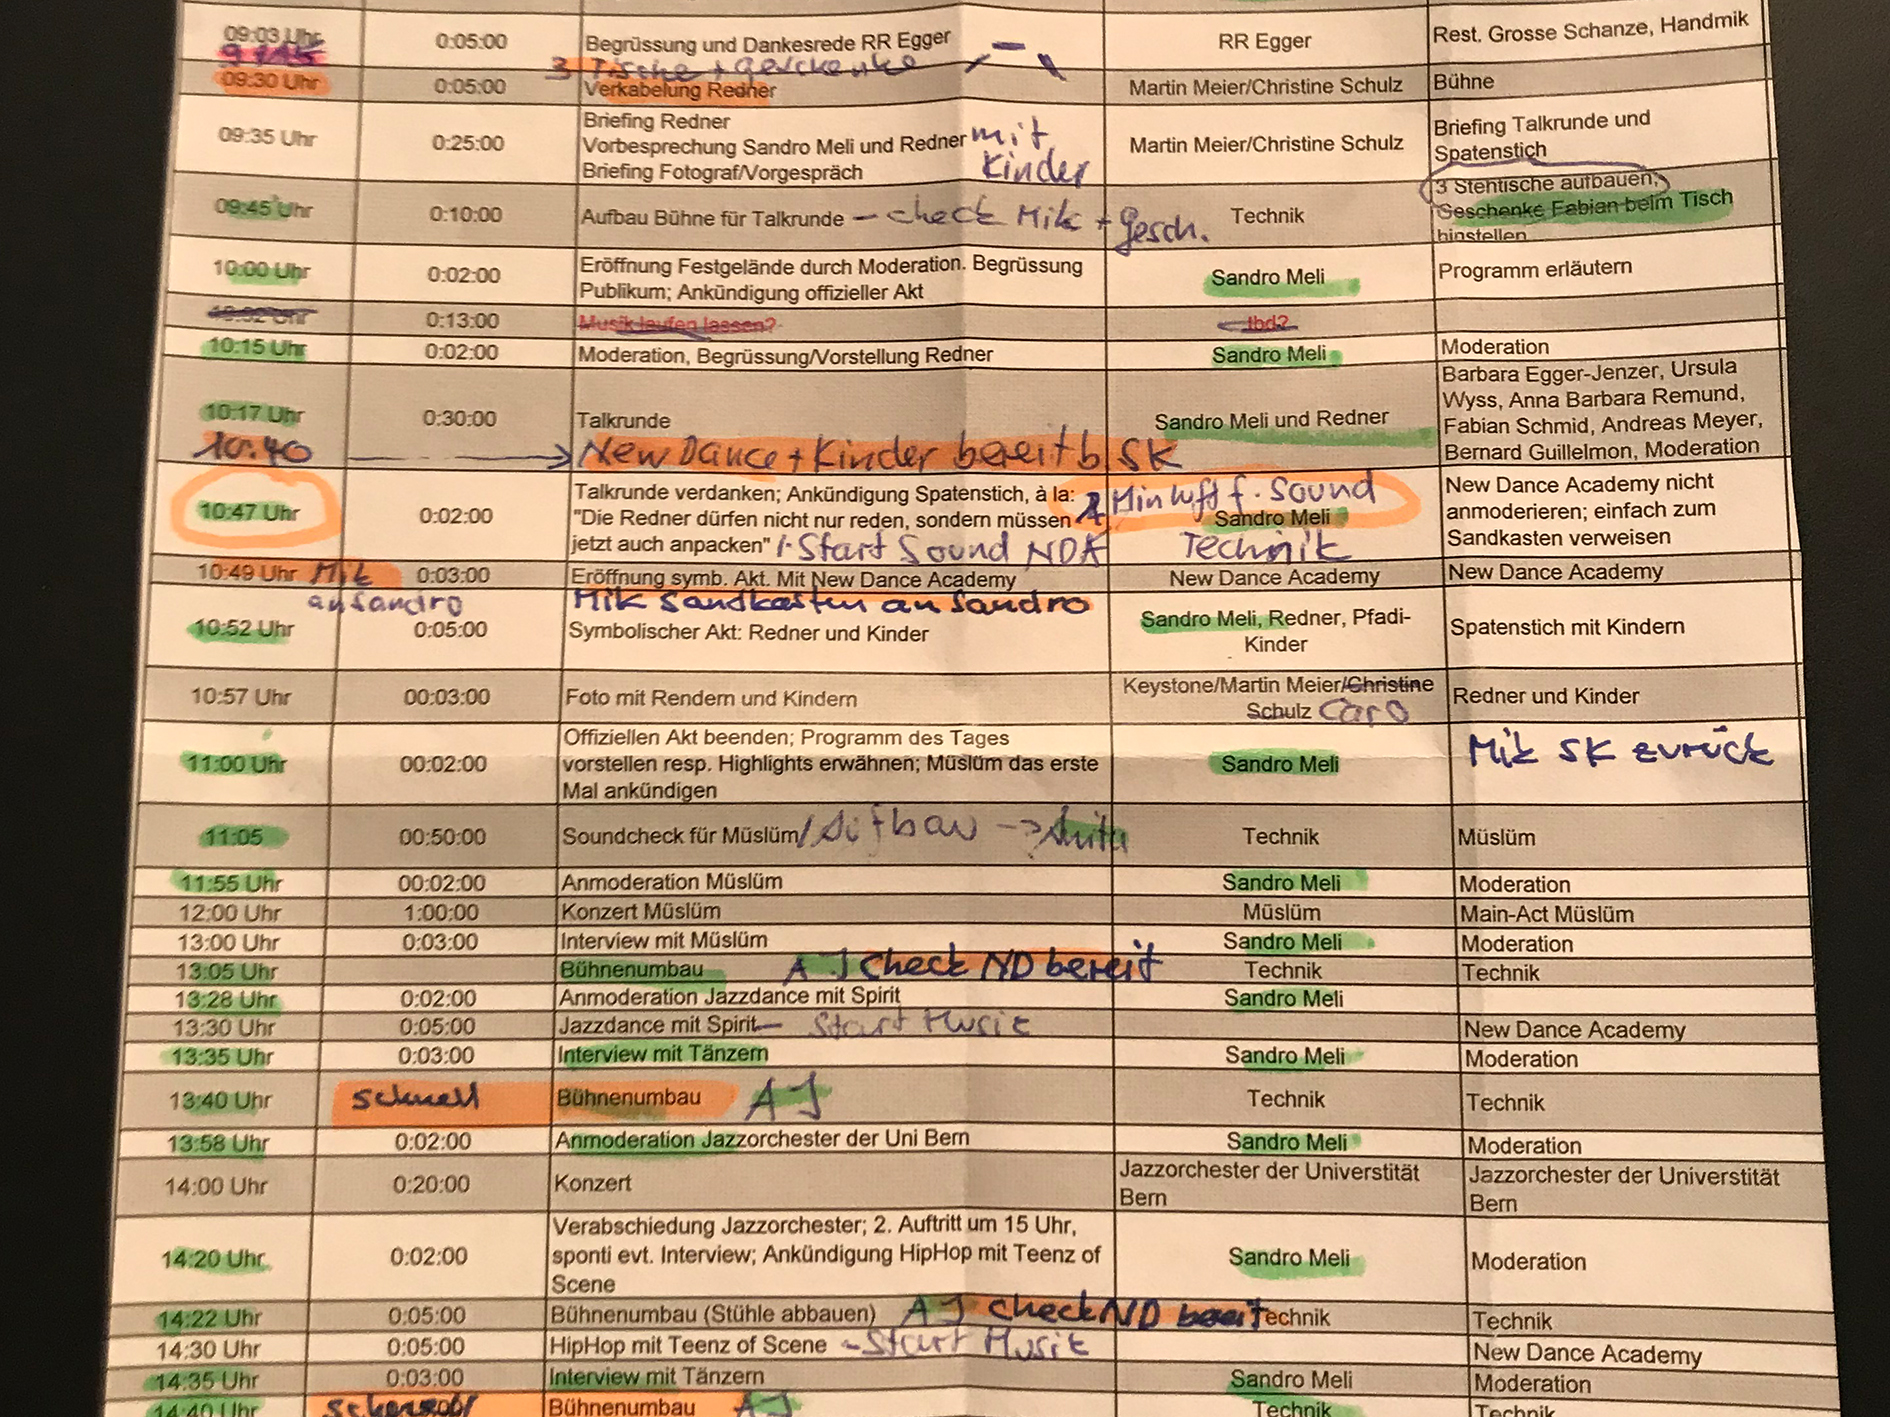 09:03 Uhr 0:05:00 Begrüssung und Dankesrede RR Egger RR Egger Rest. Grosse Schanze, Handmik
9:15 3 Tische + geschenke
09:30 Uhr 0:05:00 Verkabelung Redner Martin Meier/Christine Schulz Bühne
09:35 Uhr 0:25:00 Briefing Redner Martin Meier/Christine Schulz Briefing Talkrunde und
Vorbesprechung Sandro Meli und Redner mit Spatenstich
Briefing Fotograf/Vorgespräch Kinder
09:45 Uhr 0:10:00 Aufbau Bühne für Talkrunde – check Mik + gesch. Technik 3 Stentische aufbauen;
Geschenke Fabian beim Tisch
hinstellen
10:00 Uhr 0:02:00 Eröffnung Festgelände durch Moderation. Begrüssung Sandro Meli Programm erläutern
Publikum; Ankündigung offizieller Akt
10:02 Uhr 0:13:00 Musik laufen lassen? tbd?
10:15 Uhr 0:02:00 Moderation, Begrüssung/Vorstellung Redner Sandro Meli Moderation
10:17 Uhr 0:30:00 Talkrunde Sandro Meli und Redner Barbara Egger-Jenzer, Ursula
Wyss, Anna Barbara Remund,
Fabian Schmid, Andreas Meyer,
Bernard Guillelmon, Moderation
10.40 → New Dance + Kinder bereit b SK
10:47 Uhr 0:02:00 Talkrunde verdanken; Ankündigung Spatenstich, à la: Min luft f. Sound New Dance Academy nicht
"Die Redner dürfen nicht nur reden, sondern müssen Sandro Meli anmoderieren; einfach zum
jetzt auch anpacken" /- Start Sound NDA Technik Sandkasten verweisen
10:49 Uhr Mik 0:03:00 Eröffnung symb. Akt. Mit New Dance Academy New Dance Academy New Dance Academy
an Sandro Mik Sandkasten an Sandro
10:52 Uhr 0:05:00 Symbolischer Akt: Redner und Kinder Sandro Meli, Redner, Pfadi- Spatenstich mit Kindern
Kinder
10:57 Uhr 00:03:00 Foto mit Rendern und Kindern Keystone/Martin Meier/Christine Redner und Kinder
Schulz Caro
11:00 Uhr 00:02:00 Offiziellen Akt beenden; Programm des Tages Sandro Meli Mik SK zurück
vorstellen resp. Highlights erwähnen; Müslüm das erste
Mal ankündigen
11:05 00:50:00 Soundcheck für Müslüm / Aufbau -> Anita Technik Müslüm
11:55 Uhr 00:02:00 Anmoderation Müslüm Sandro Meli Moderation
12:00 Uhr 1:00:00 Konzert Müslüm Müslüm Main-Act Müslüm
13:00 Uhr 0:03:00 Interview mit Müslüm Sandro Meli Moderation
13:05 Uhr Bühnenumbau A J check ND bereit Technik Technik
13:28 Uhr 0:02:00 Anmoderation Jazzdance mit Spirit Sandro Meli
13:30 Uhr 0:05:00 Jazzdance mit Spirit – Start Musik New Dance Academy
13:35 Uhr 0:03:00 Interview mit Tänzern Sandro Meli Moderation
13:40 Uhr schnell Bühnenumbau A J Technik Technik
13:58 Uhr 0:02:00 Anmoderation Jazzorchester der Uni Bern Sandro Meli Moderation
14:00 Uhr 0:20:00 Konzert Jazzorchester der Universtität Jazzorchester der Universtität
Bern Bern
14:20 Uhr 0:02:00 Verabschiedung Jazzorchester; 2. Auftritt um 15 Uhr, Sandro Meli Moderation
sponti evt. Interview; Ankündigung HipHop mit Teenz of
Scene
14:22 Uhr 0:05:00 Bühnenumbau (Stühle abbauen) A J check ND bereit Technik Technik
14:30 Uhr 0:05:00 HipHop mit Teenz of Scene – Start Musik New Dance Academy
14:35 Uhr 0:03:00 Interview mit Tänzern Sandro Meli Moderation
14:40 Uhr Bühnenumbau A J Technik Technik